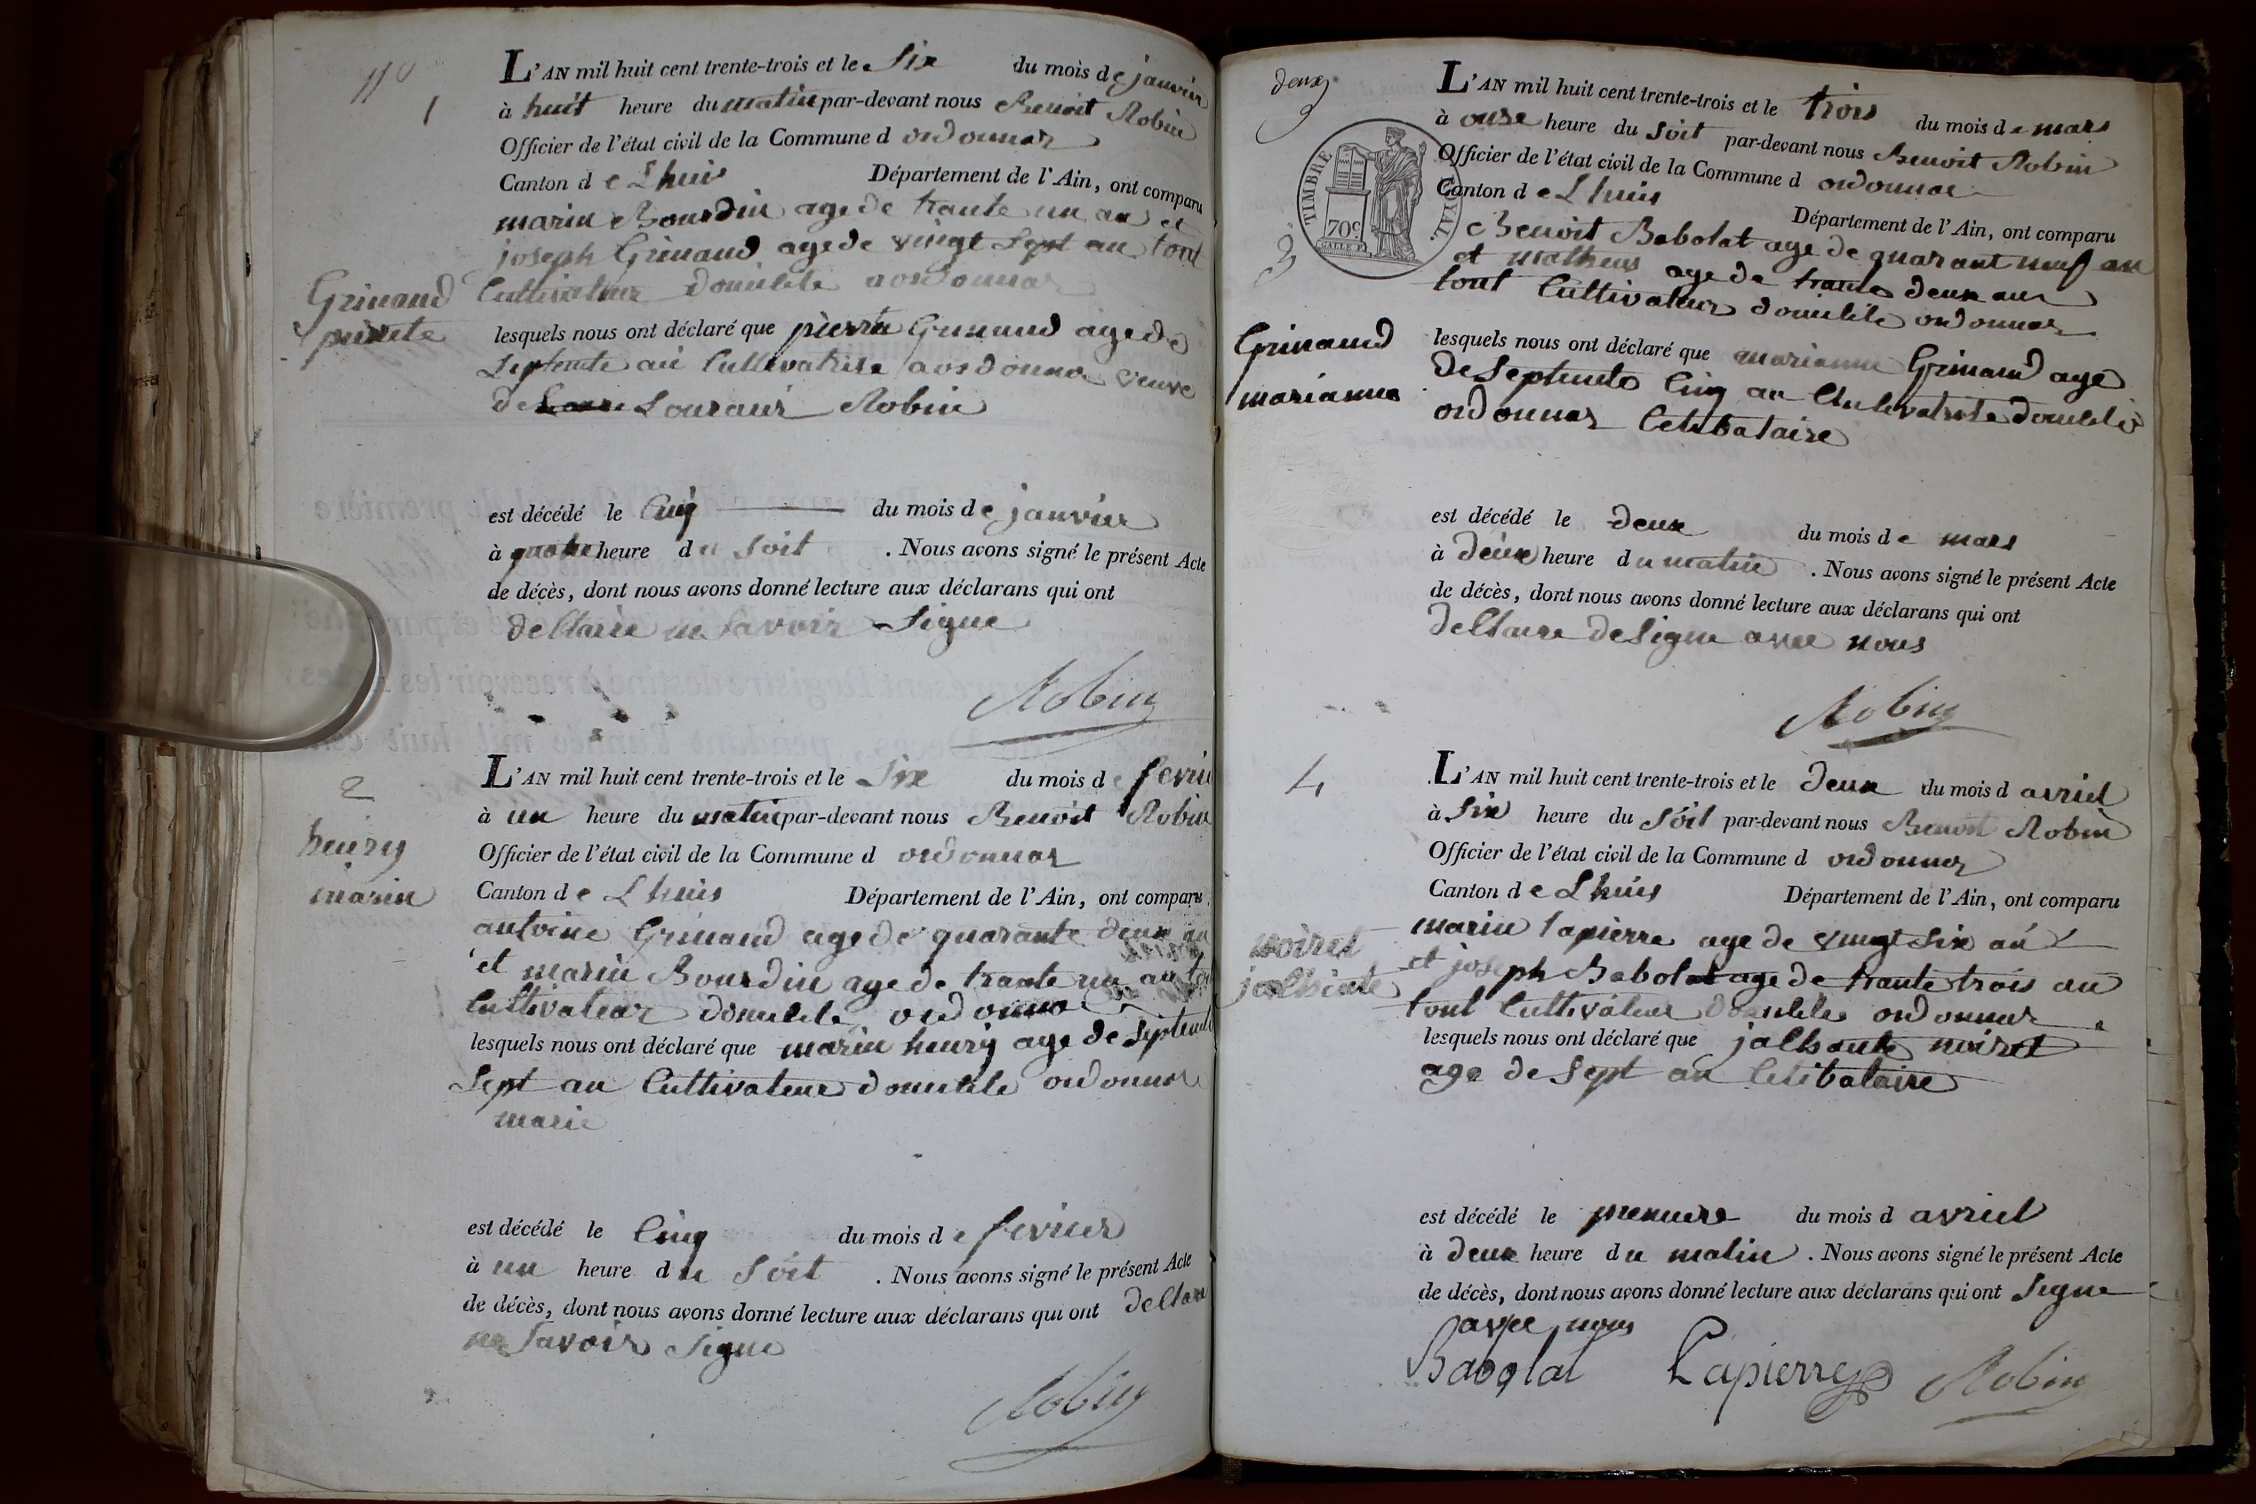 110
1
L'AN mil huit cent trente-trois et le Six du mois de janvier
à huit heure du matin par-devant nous Benoit Robin
Officier de l'état civil de la Commune d ordonnas
Canton de Lhuis Département de l'Ain, ont comparu
marin Bourdin age de trante un an et
joseph Grinand age de vingt Sept an tout
Cultivateur domicilie a ordonnas
Grinand
lesquels nous ont déclaré que Grinand age de
an Cultivatrise a ordonna veuve
de Robin
est décédé le Cinq du mois de janvier
à quatre heure du Soit . Nous avons signé le présent Acte
de décès, dont nous avons donné lecture aux déclarans qui ont
deClaire ne Savoir Signe
Robin
2
henry
marin
L'AN mil huit cent trente-trois et le Six du mois de fevrie
à un heure du matin par-devant nous Benoit Robin
Officier de l'état civil de la Commune d ordonnas
Canton de Lhuis Département de l'Ain, ont comparu
antoine Grinand age de quarante deux an
et marin Bourdin age de trante un an
Cultivateur domicile ordonna
lesquels nous ont déclaré que marin henry age de septente
Sept an Cultivateur domicile ordonnas
marie
est décédé le Cinq du mois de fevrier
à un heure du Soit . Nous avons signé le présent Acte
de décès, dont nous avons donné lecture aux déclarans qui ont deClare
ne Savoir Signe
Robin
deux
3
TIMBRE ROYAL.
70c
3
L'AN mil huit cent trente-trois et le trois du mois de mars
à onse heure du Soit par-devant nous Benoit Robin
Officier de l'état civil de la Commune d ordonnas
Canton de Lhuis Département de l'Ain, ont comparu
Benoit Babolat age de quarant neuf an
et age de trante deux an
tout Cultivateur domicilie ordonnas
Grinand
marianne
lesquels nous ont déclaré que marianne Grinand age
de Septente Cinq an domicilie
ordonnas Celibataire
est décédé le deux du mois de mars
à deux heure du matin . Nous avons signé le présent Acte
de décès, dont nous avons donné lecture aux déclarans qui ont
deClaire de Signe avec nous
Robin
4
L'AN mil huit cent trente-trois et le deux du mois d avriel
à Six heure du Soit par-devant nous Benoit Robin
Officier de l'état civil de la Commune d ordonnas
Canton de Lhuis Département de l'Ain, ont comparu
marin lapierre age de vingt Six an
et joseph Babolat age de trante trois an
tout Cultivateur domicilie ordonnas
noiret
lesquels nous ont déclaré que noiret
age de Sept an Celibataire
est décédé le premiere du mois d avriel
à deux heure du matin . Nous avons signé le présent Acte
de décès, dont nous avons donné lecture aux déclarans qui ont Signe
avec nous
Babolat Lapierre Robin